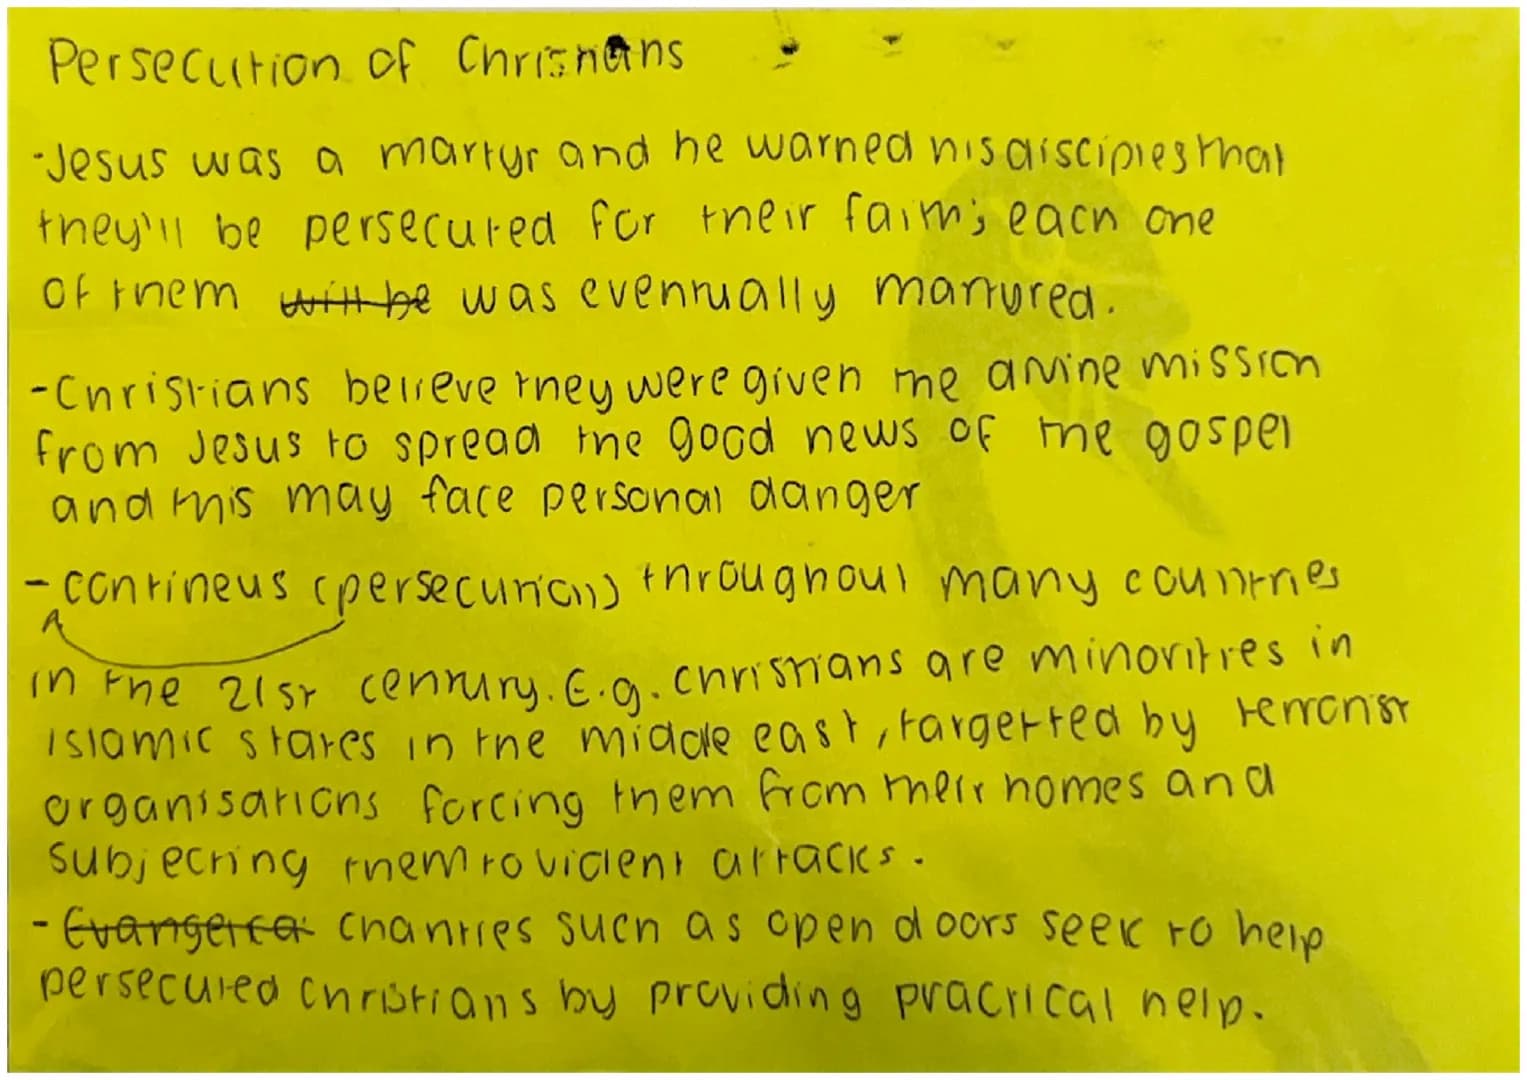 Persecution of Christians
-Jesus was a martyr and he warned his disciples that
they'll be persecuted for their faith; each one
of them will be was eventually martyred.
-Christians believe they were given the divine mission
from Jesus to spread the good news of the gospel
and this may face personal danger
- contineus (persecution) throughout many countries
in the 21st century. E.g. Christians are minoritres in
islamic states in the middle east, targetted by terrorist
organisations forcing them from their homes and
subjecting them to violent attacks.
- Evangelica charities such as open doors seek to help
persecuted christians by providing practical help.